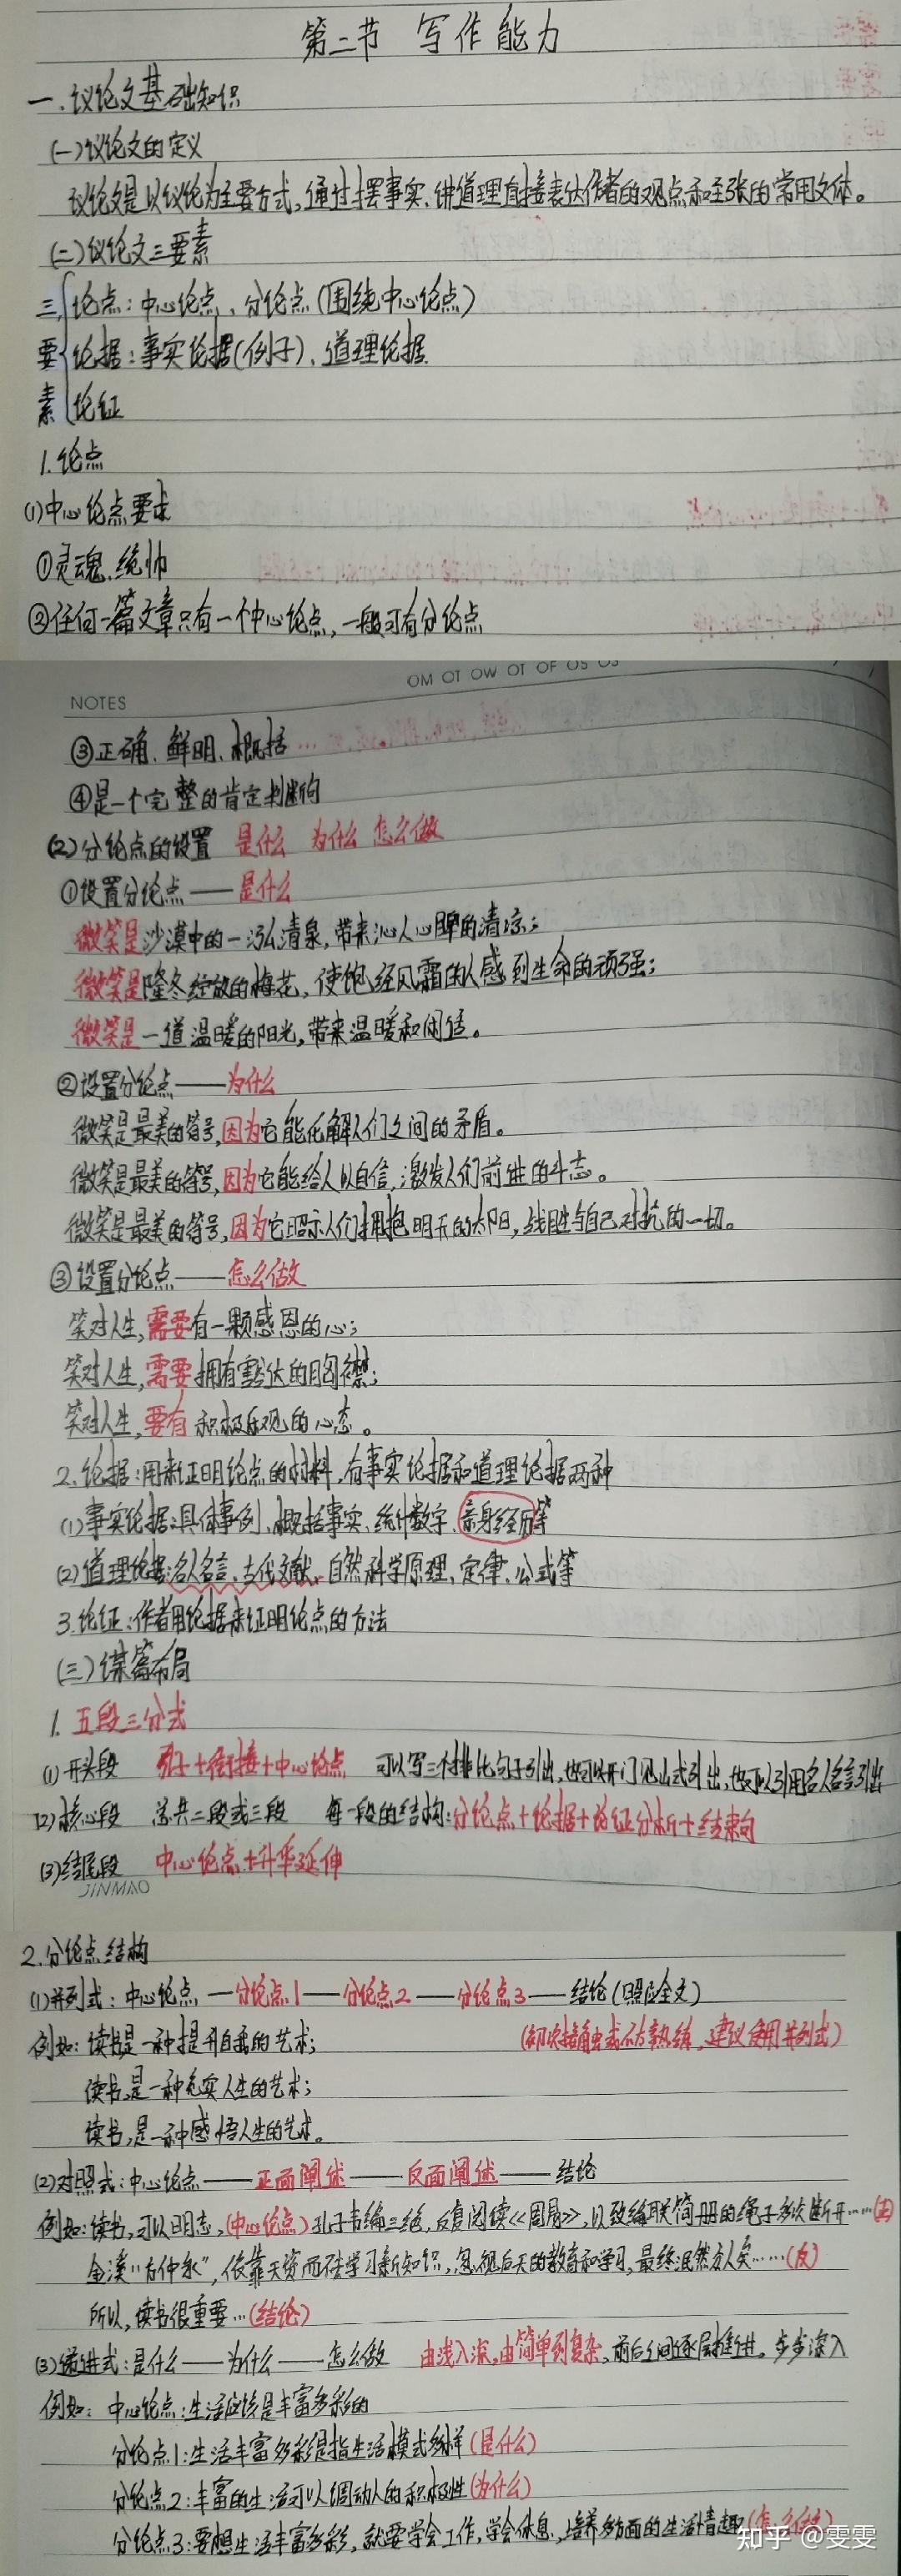 第二节 写作能力
一.议论文基础知识
(一)议论文的定义
议论文是以议论为主要方式,通过摆事实、讲道理直接表达作者的观点和主张的常用文体。
(二)议论文三要素
三 论点:中心论点、分论点(围绕中心论点)
要 论据:事实论据(例子)、道理论据
素 论证
1.论点
(1)中心论点要求
①灵魂、统帅
②任何一篇文章只有一个中心论点,一般可有分论点
NOTES
③正确、鲜明、概括
④是一个完整的肯定判断句
(2)分论点的设置 是什么 为什么 怎么做
①设置分论点——是什么
微笑是沙漠中的一泓清泉,带来沁人心脾的清凉;
微笑是隆冬绽放的梅花,使饱经风霜的人感到生命的顽强;
微笑是一道温暖的阳光,带来温暖和闲适。
②设置分论点——为什么
微笑是最美的符号,因为它能化解人们之间的矛盾。
微笑是最美的符号,因为它能给人以自信,激发人们前进的斗志。
微笑是最美的符号,因为它昭示人们拥抱明天的太阳,战胜与自己对抗的一切。
③设置分论点——怎么做
笑对人生,需要有一颗感恩的心;
笑对人生,需要拥有豁达的胸襟;
笑对人生,要有积极乐观的心态。
2.论据:用来证明论点的材料,有事实论据和道理论据两种
(1)事实论据:具体事例、概括事实、统计数字、亲身经历等
(2)道理论据:名人名言、古代文献、自然科学原理、定律、公式等
3.论证:作者用论据来证明论点的方法
(三)谋篇布局
1.五段三分式
(1)开头段 引子+衔接+中心论点 可以写三个排比句子引出,也可以开门见山式引出,也可以引用名人名言引出
(2)核心段 总共二段或三段 每一段的结构:分论点+论据+论证分析+结束句
(3)结尾段 中心论点+升华延伸
JINMAO
2.分论点结构
(1)并列式:中心论点—分论点1——分论点2——分论点3——结论(照应全文)
例如:读书是一种提升自我的艺术; (初次接触或不够熟练,建议使用并列式)
读书,是一种充实人生的艺术;
读书,是一种感悟人生的艺术。
(2)对照式:中心论点——正面阐述——反面阐述——结论
例如:读书,可以明志,(中心论点)孔子韦编三绝,反复阅读《周易》,以致编联简册的绳子多次断开……(正)
金溪“方仲永”,依靠天资而不去学习新知识,忽视后天的教育和学习,最终泯然众人矣……(反)
所以,读书很重要…(结论)
(3)递进式:是什么——为什么——怎么做 由浅入深,由简单到复杂,前后之间逐层推进,步步深入
例如:中心论点:生活应该是丰富多彩的
分论点1:生活丰富多彩是指生活模式多样(是什么)
分论点2:丰富的生活可以调动人的积极性(为什么)
分论点3:要想生活丰富多彩,就要学会工作,学会休息,培养多方面的生活情趣(怎么做)
知乎 @雯雯